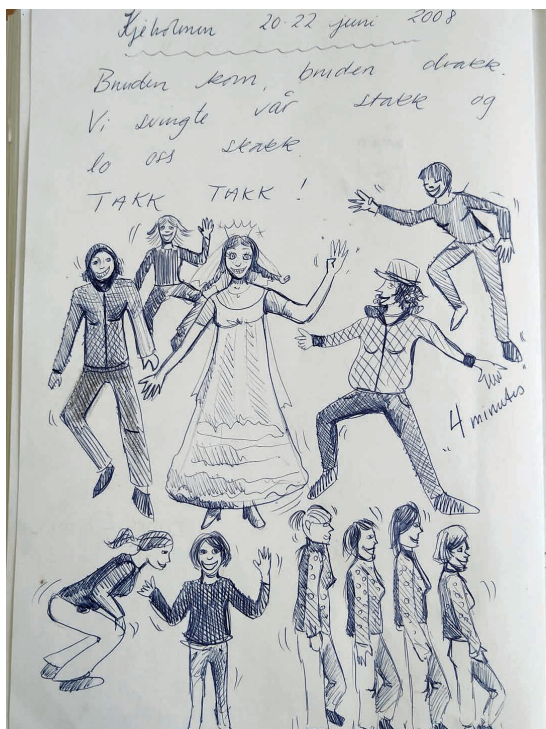 Kjeholmen 20-22 juni 2008
Bruden kom, bruden drakk.
Vi svingte vår stakk og
lo oss skakk.
TAKK TAKK !
"4 minutes"